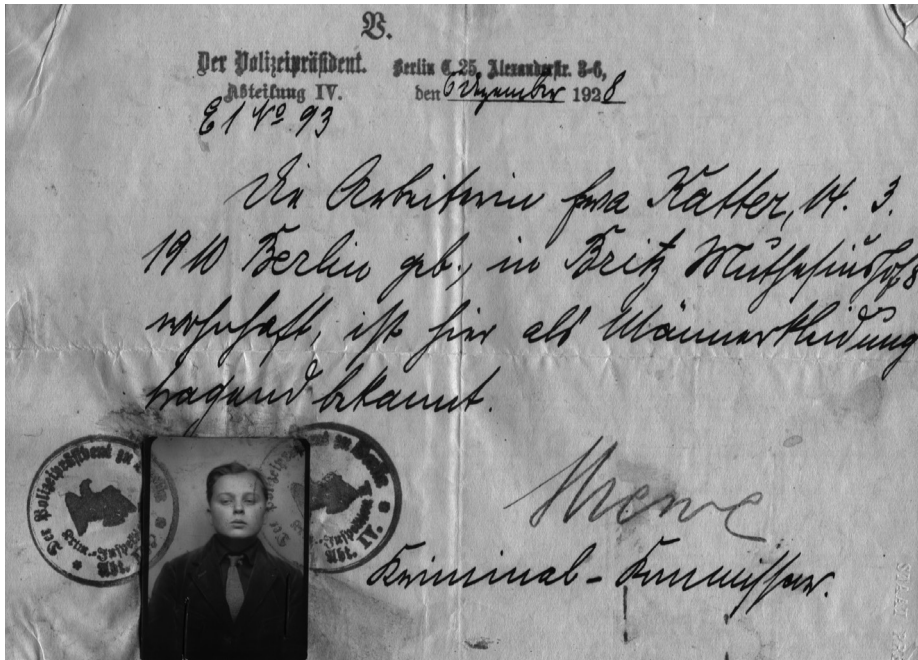 V.
Der Polizeipräsident. Berlin C. 25, Alexanderstr. 3-6,
Abteilung IV. den 6 Dezember 1928
E 1 No 93
Die Arbeiterin Eva Katter, 14. 3.
1910 Berlin geb., in Britz Muthesiushof 8
wohnhaft, ist hier als Männerkleidung
tragend bekannt.
Der Polizeipräsident zu Berlin
Abt. IV.
Abt. IV.
Kriminal-Kommissar.